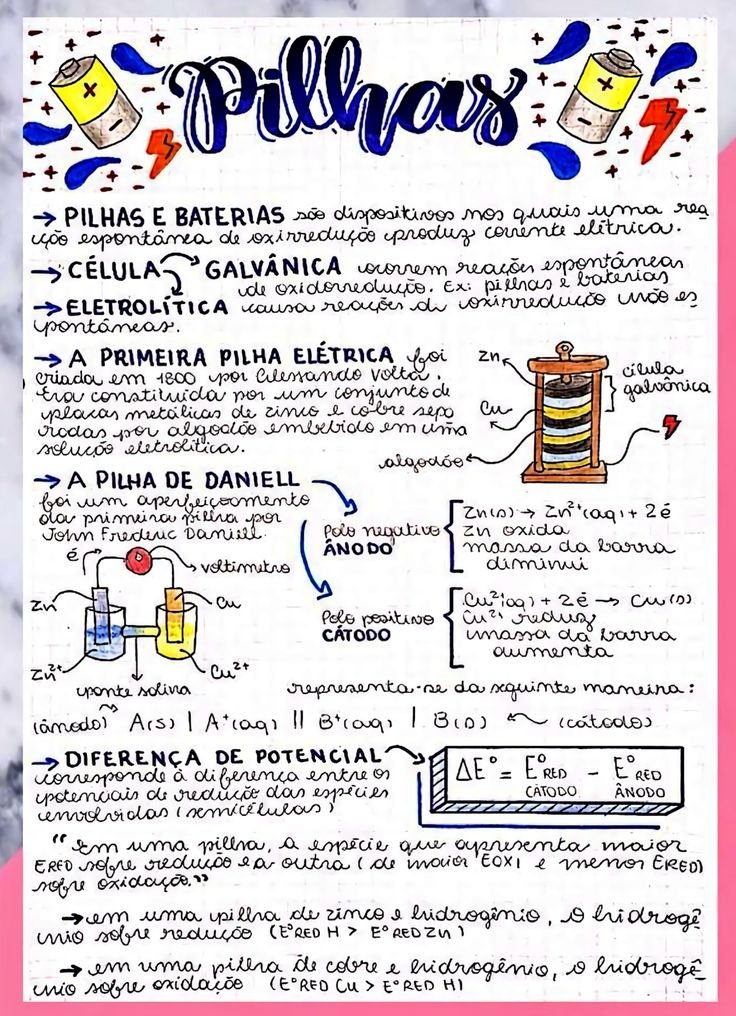 Pilhas
→ PILHAS E BATERIAS são dispositivos nos quais uma rea
ção espontânea de oxirredução produz corrente elétrica.
→ CÉLULA GALVÂNICA ocorrem reações espontâneas
de oxidorredução. Ex: pilhas e baterias
→ ELETROLÍTICA causa reações de oxirredução não es
pontâneas.
→ A PRIMEIRA PILHA ELÉTRICA foi
criada em 1800 por Alessandro Volta.
Era constituída por um conjunto de
placas metálicas de zinco e cobre sepa
radas por algodão embebido em uma
solução eletrolítica.
Zn
Cu
algodão
célula
galvânica
→ A PILHA DE DANIELL
foi um aperfeiçoamento
da primeira pilha por
John Frederic Daniell.
é
voltímetro
Zn
Cu
Zn²⁺
Cu²⁺
ponte salina
Polo negativo
ÂNODO
Zn(s) → Zn²⁺(aq) + 2é
Zn oxida
massa da barra
diminui
Polo positivo
CÁTODO
Cu²⁺(aq) + 2é → Cu(s)
Cu²⁺ reduz
massa da barra
aumenta
representa-se da seguinte maneira:
(ânodo) A(s) | A⁺(aq) || B⁺(aq) | B(s) (cátodo)
→ DIFERENÇA DE POTENCIAL
corresponde à diferença entre os
potenciais de redução das espécies
envolvidas (semicélulas)
ΔE° = E°RED - E°RED
CÁTODO ÂNODO
"Em uma pilha, a espécie que apresenta maior
ERED sofre redução e a outra (de maior EOXI e menor ERED)
sofre oxidação."
→ em uma pilha de zinco e hidrogênio, o hidrogê
nio sofre redução (E°RED H > E°RED Zn)
→ em uma pilha de cobre e hidrogênio, o hidrogê
nio sofre oxidação (E°RED Cu > E°RED H)